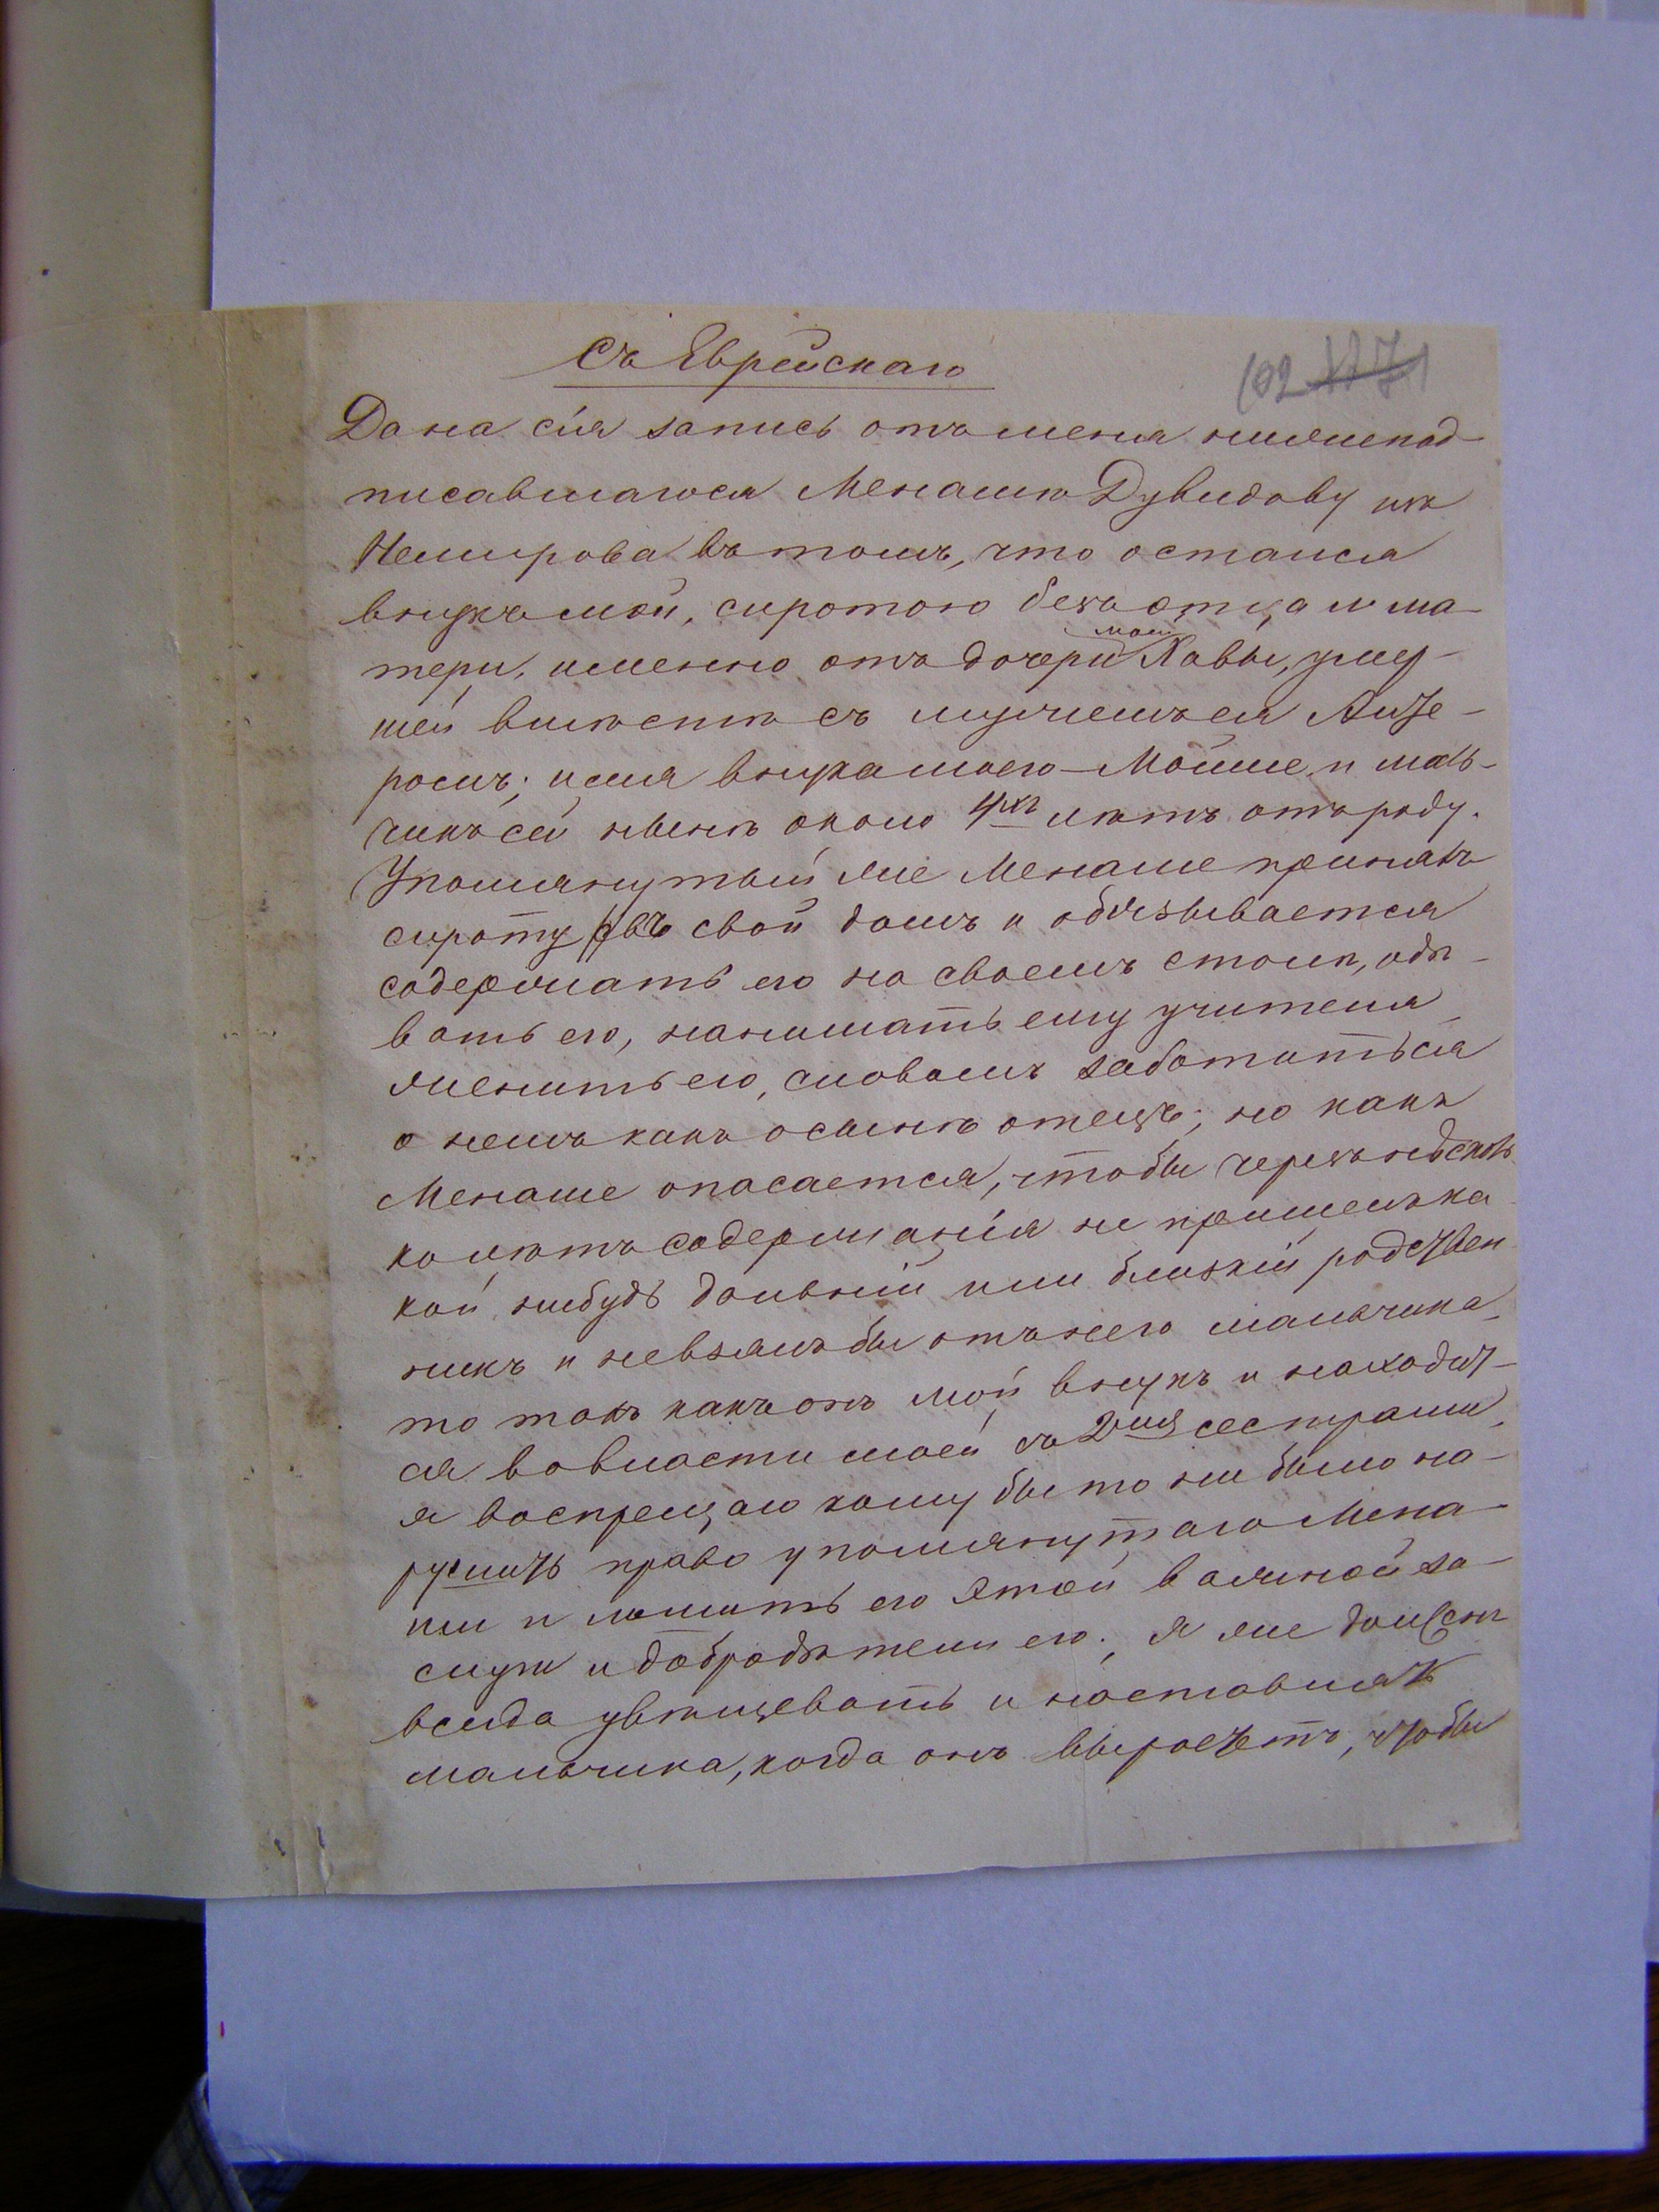 Съ Еврейскаго
102 177
Дана сія запись отъ меня нижепод-
писавшагося Менашѣ Дувидову изъ
Немирова въ томъ, что остался
внукъ мой, сиротою безъ отца и ма-
тери, именно отъ дочери моей Хавы, умер-
шей вмѣстѣ съ мужемъ ея Лизе-
ромъ; имя внука моего Мойше и маль-
чикъ сей нынѣ около 4хъ лѣтъ отъ роду.
Упомянутый же Менаше принялъ
сироту въ свой домъ и обязывается
содержать его на своемъ столѣ, одѣ-
вать его, нанимать ему учителя,
женить его, словомъ заботиться
о немъ какъ о сынѣ отецъ; но какъ
Менаше опасается, чтобы черезъ нѣсколь-
ко лѣтъ содержанія не пришелъ ка-
кой нибудь дальній или близкій родствен
никъ и не взялъ бы отъ него мальчика,
то такъ какъ онъ мой внукъ и находит-
ся во власти моей съ 2мя сестрами,
я воспрещаю кому бы то ни было на-
рушить право упомянутаго Мена-
ши и лишить его этой важной за-
слуги и добродѣтели его. Я же долженъ
всегда увѣщевать и наставлять
мальчика, когда онъ выростетъ, чтобы